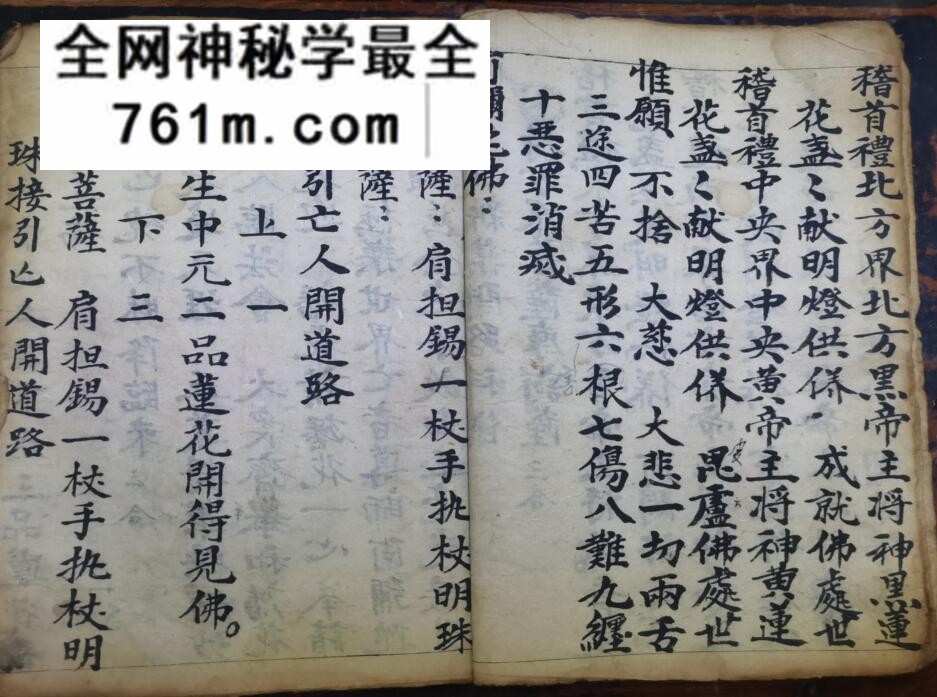 全网神秘学最全
761m.com
稽首禮北方界北方黑帝主将神黑蓮
花盞〻献明燈供佛 成就佛處世
稽首禮中央界中央黄帝主将神黄蓮
花盞〻献明燈供佛 毘盧佛處世
惟願 不捨 大慈 大悲一切兩舌
三途四苦五形六根七傷八難九纏
十悪罪消滅
佛：
薩：肩担錫一杖手执杖明珠
薩：
引亡人開道路
上一
生中元二品蓮花開得見佛。
下三
菩薩 肩担錫一杖手执杖明
珠接引亡人開道路